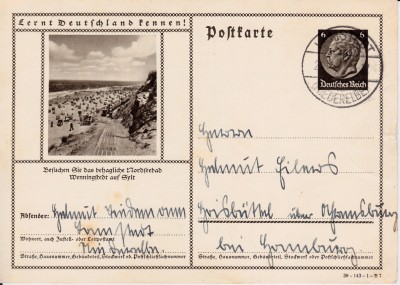 Lernt Deutschland kennen!
Postkarte
6 6
Deutsches Reich
Besuchen Sie das behagliche Nordseebad
Wenningstedt auf Sylt
Absender: Helmut
Wohnort, auch Zustell- oder Leitpostamt
Straße, Hausnummer, Gebäudeteil, Stockwerk od. Postschließfachnummer
Herrn
Helmut Eilers
über Ahrensburg
bei Hamburg
Straße, Hausnummer, Gebäudeteil, Stockwerk oder Postschließfachnummer
39-143-1-B7